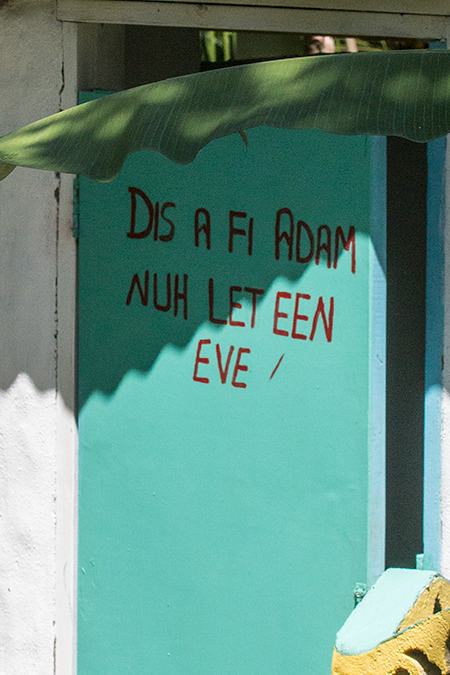 DIS A FI ADAM
NUH LET EEN
EVE /